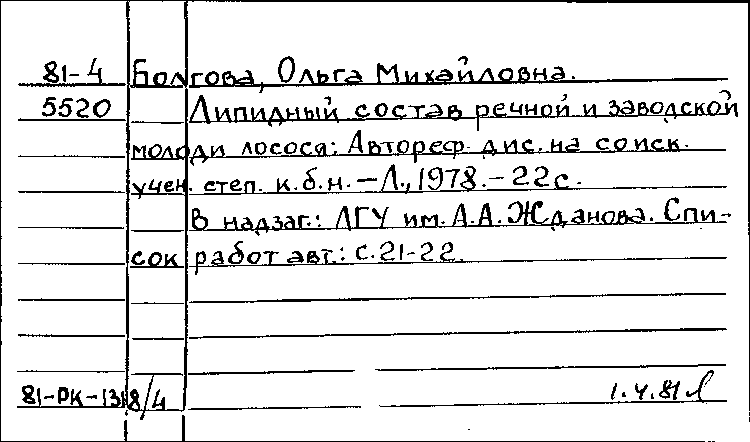 81-4 Болгова, Ольга Михайловна.
5520 Липидный состав речной и заводской
молоди лосося: Автореф. дис. на соиск.
учен. степ. к.б.н. — Л., 1978. – 22 с.
В надзаг.: ЛГУ им. А.А. Жданова. Спи-
сок работ авт.: с. 21-22.
81-РК-1318/4 1.4.81